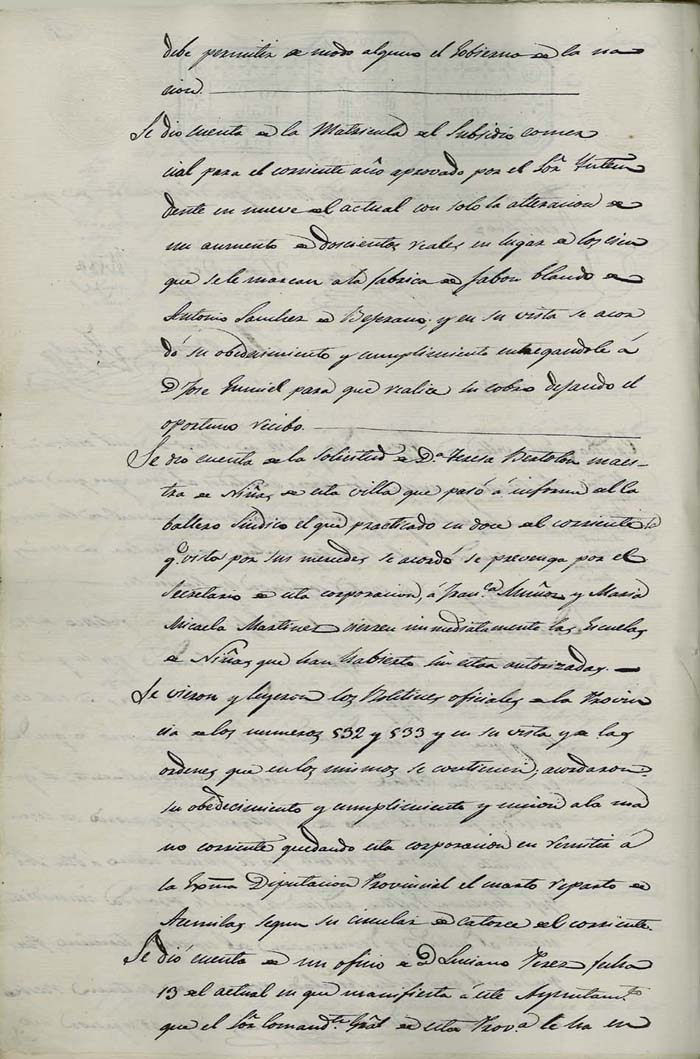 debe permitir de modo alguno el Gobierno de la na
cion.
Se dio cuenta de la Matricula del Subsidio comer
cial para el corriente año aprovado por el Sor. Inten
dente en nueve del actual con solo la alteracion de
un aumento de doscientos reales en lugar de los cien
que se le marcan a la fabrica de Jabon blando de
Antonio Sanchez de Bejerano. y en su vista se acor
dó su obedecimiento y cumplimiento entregandole á
D Jose para que realice su cobro dejando el
oportuno recibo.
Se dio cuenta de la solicitud de D.a Teresa Bertolon maes-
tra de Niñas de esta villa que pasó á informe del Ca
ballero Sindico el que practicado en doce del corriente
q.e vista por sus mercedes se acordó se prevenga por el
Secretario de esta corporacion, á Fran.ca Muñoz y Maria
Micaela Martinez cierren immediatamente las Escuelas
de Niñas que han habierto sin estar autorizadas.
Se vieron y leyeron los Boletines oficiales de la Provin
cia de los numeros 532 y 533 y en su vista y de las
ordenes que en los mismos se contienen; acordaron
su obedecimiento y cumplimiento y union a la ma
no corriente quedando esta corporacion en remitir á
la Exma Diputacion Provincial el cuarto reparto de
Acemilas segun su circular de catorce del corriente.
Se dió cuenta de un oficio de D Luciano Perez fecha
13 del actual en que manifiesta á este Ayuntam.to
que el Sor. Comand.te Gral de esta Prov.a le ha en